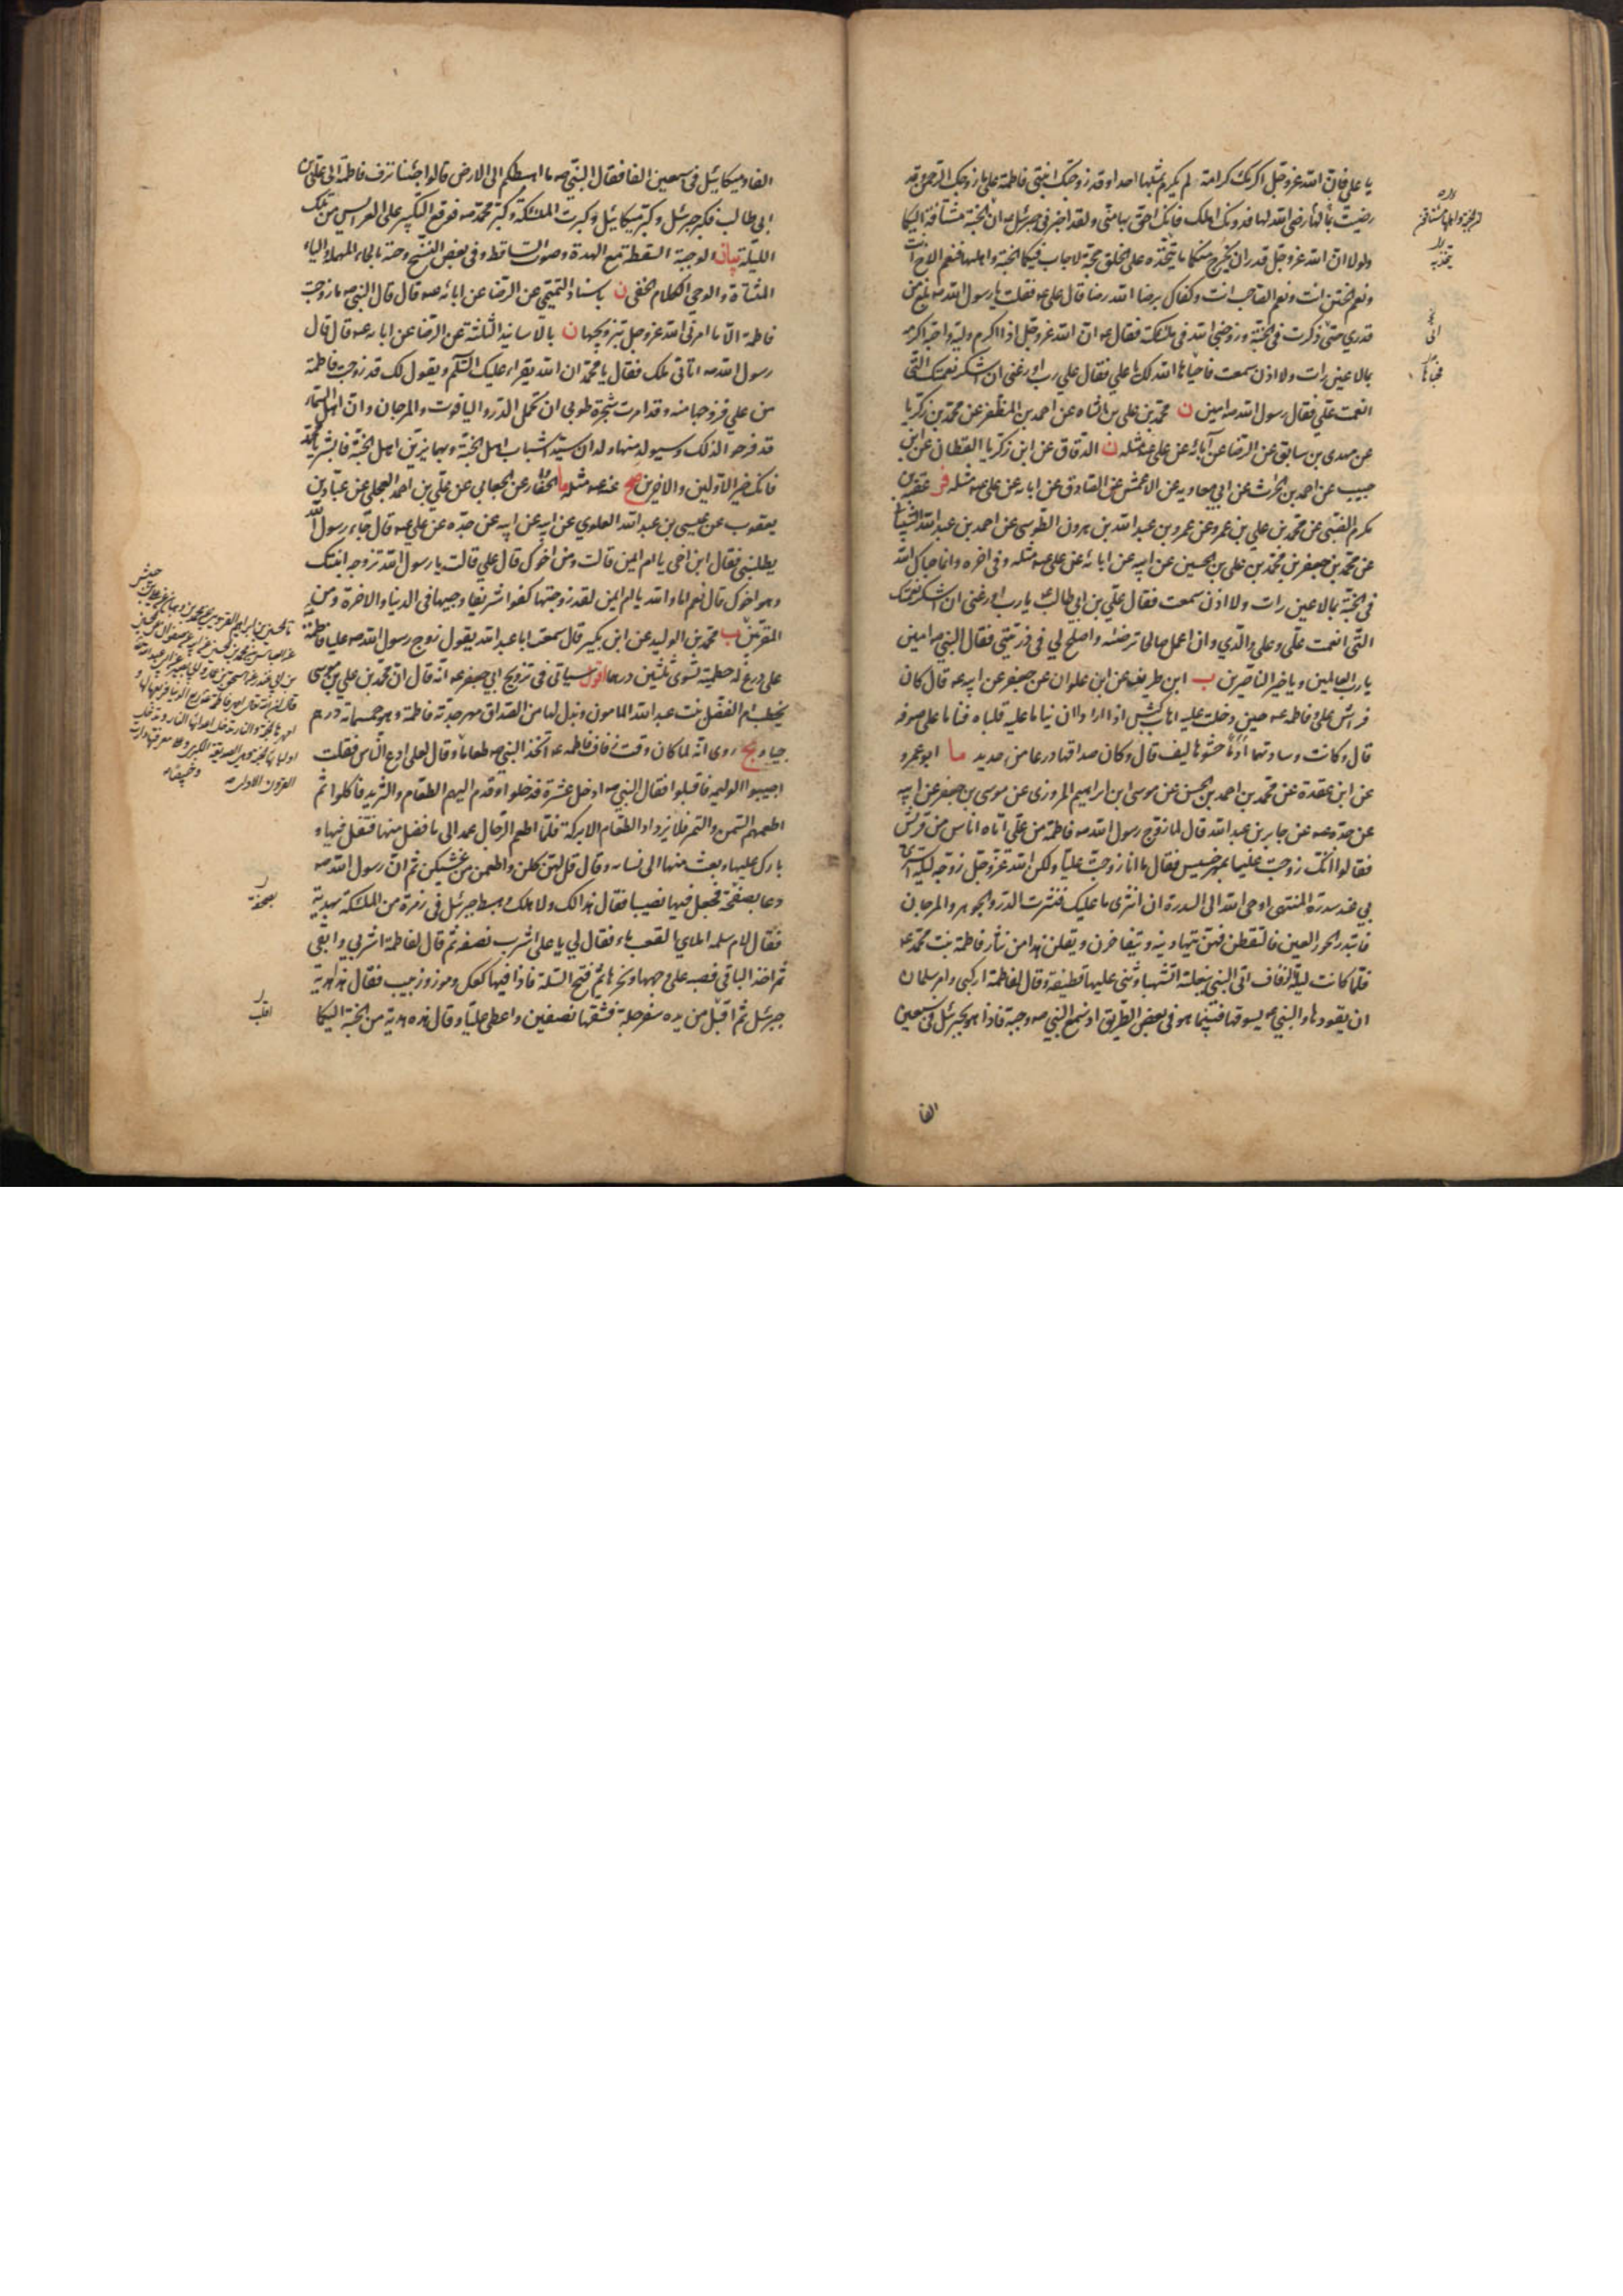 يا علي فان الله عز وجل اكرمك كرامة لم يكرم بمثلها احدا وقد زوجتك ابنتي فاطمة على ما زوجك الرحمن وقد
رضيت بما لها رضي الله لها فدونك اهلك فانك احق بها مني ولقد اخبرني جبرئيل ان الجنة مشتاقة اليكما
ولولا ان الله عز وجل قدر ان يخرج منكما ما يتخذه على الخلق حجة لاجاب فيكما الجنة واهلها فنعم الاخ انت
ونعم الختن انت ونعم الصاحب انت وكفاك برضا الله رضا قال علي عه فقلت يا رسول الله صه بلغ من
قدري حتى ذكرت في الجنة وزوجني الله في ملئكته فقال عه ان الله عز وجل اذا اكرم وليه واحبه اكرمه
بما لا عين رات ولا اذن سمعت فاحياها الله لك يا علي فقال علي رب اوزعني ان اشكر نعمتك التي
انعمت علي فقال رسول الله صه امين ن محمد بن علي بن الشاه عن احمد بن المظفر عن محمد بن زكريا
عن مهدي بن سابق عن الرضا عن آبائه عن علي عه مثله ن الدقاق عن ابن زكريا القطان عن ابن
حبيب عن احمد بن الحرث عن ابي معاويه عن الاعمش عن الصادق عن ابائه عن علي عه مثله فر عقبة بن
مكرم الضبي عن محمد بن علي بن عمرو عن عمرو بن عبد الله بن هرون الطوسي عن احمد بن عبد الله الشيباني
عن محمد بن جعفر بن محمد بن علي بن الحسين عن ابيه عن ابائه عن علي عه مثله وفي اخره وانما حباك الله
في الجنة بما لا عين رات ولا اذن سمعت فقال علي بن ابي طالب يا رب اوزعني ان اشكر نعمتك
التي انعمت علي وعلى والدي وان اعمل صالحا ترضاه واصلح لي في ذريتي فقال النبي صه امين
يا رب العالمين ويا خير الناصرين ب ابن طريف عن ابن علوان عن جعفر عن ابيه عه قال كان
فراش علي وفاطمه عه حين دخلت عليه اهاب كبش اذا ارادا ان يناما عليه قلباه فناما على صوفه
قال وكانت وسادتهما ادما حشوها ليف قال وكان صداقها درعا من حديد ما ابو عمرو
عن ابن عقدة عن محمد بن احمد بن الحسن عن موسى ابن ابراهيم المروزي عن موسى بن جعفر عن ابيه
عن جده عه عن جابر بن عبد الله قال لما زوج رسول الله صه فاطمة من علي اتاه اناس من قريش
فقالوا انك زوجت عليا بمهر خسيس فقال ما انا زوجت عليا ولكن الله عز وجل زوجه ليلة اسرى
بي عند سدرة المنتهى اوحى الله الى السدرة ان انثري ما عليك فنثرت الدر والجوهر والمرجان
فابتدر الحور العين فالتقطن فهن يتهادينه ويتفاخرن ويقلن هذا من نثار فاطمة بنت محمد عه
فلما كانت ليلة الزفاف اتى النبي ببغلته الشهباء وثنى عليها قطيفة وقال لفاطمة اركبي وامر سلمان
ان يقودها والنبي صه يسوقها فبينما هو في بعض الطريق اذ سمع النبي صه وجبة فاذا هو بجبرئيل في سبعين
الفا
الفا وميكائيل في سبعين الفا فقال النبي صه ما اهبطكم الى الارض قالوا جئنا نزف فاطمة الى علي بن
ابي طالب فكبر جبرئيل وكبر ميكائيل وكبرت الملئكة وكبر محمد صه فوقع التكبير على العرايس من تلك
الليلة بيان الوجبة السقطة مع الهدة وصوت الساقط وفي بعض النسخ وحية بالحاء المهملة والياء
المثناة والوحي الكلام الخفي ن باسناد التميمي عن الرضا عن ابائه عه قال قال النبي صه ما زوجت
فاطمة الا ما امرني الله عز وجل بتزويجها ن بالاسانيد الثلثة عن الرضا عن ابائه عه قال قال
رسول الله صه اتاني ملك فقال يا محمد ان الله يقراء عليك السلام ويقول لك قد زوجت فاطمة
من علي فزوجها منه وقد امرت شجرة طوبى ان تحمل الدر والياقوت والمرجان وان اهل السماء
قد فرحوا لذلك وسيولد منها ولدان سيدا شباب اهل الجنة وبهما يزين اهل الجنة فابشر يا محمد
فانك خير الاولين والاخرين صح عنه عه مثله ما الحفار عن الجعابي عن علي بن احمد العجلي عن عباد بن
يعقوب عن عيسى بن عبد الله العلوي عن ابيه عن ابيه عن جده عن علي عه قال جاء رسول الله
يطلبني فقال اين اخي يا ام ايمن قالت ومن اخوك قال علي قالت يا رسول الله تزوجه ابنتك
وهو اخوك قال نعم اما والله يا ام ايمن لقد زوجتها كفوا شريفا وجيها في الدنيا والاخرة ومن
المقربين ب محمد بن الوليد عن ابن بكير قال سمعت ابا عبد الله يقول زوج رسول الله صه عليا فاطمة
على درع له حطمية تسوى ثلثين درهما اقول سياتي في تزويج ابي جعفر عه انه قال ان محمد بن علي بن موسى
يخطب ام الفضل بنت عبد الله المامون وبذل لها من الصداق مهر جدته فاطمة وهو خمسمائة درهم
جياد يج روى انه لما كان وقت زفاف فاطمه عه اتخذ النبي صه طعاما وقال لعلي ادع الناس فقلت
اجيبوا الوليمة فاقبلوا فقال النبي صه ادخل عشرة فدخلوا وقدم اليهم الطعام والثريد فاكلوا ثم
اطعمهم السمن والتمر فلا يزداد الطعام الا بركة فلما اطعم الرجال عمد الى ما فضل منها فتفل فيها و
بارك عليها وبعث منها الى نسائه وقال قل لهن كلن واطعمن من غشيكن ثم ان رسول الله صه
دعا بصفحة فجعل فيها نصيبا فقال هذا لك ولاهلك وهبط جبرئيل في زمرة من الملئكة بهدية
فقال لام سلمه املاي القعب ماء فقال لي يا علي اشرب نصفه ثم قال لفاطمة اشربي وابقي
ثم اخذ الباقي فصبه على وجهها ونحرها ثم فتح السلة فاذا فيها كعك وموز وزبيب فقال هذا هدية
جبرئيل ثم اقبل من يده سفرجلة فشقها نصفين واعطى عليا وقال هذه هدية من الجنة اليكما